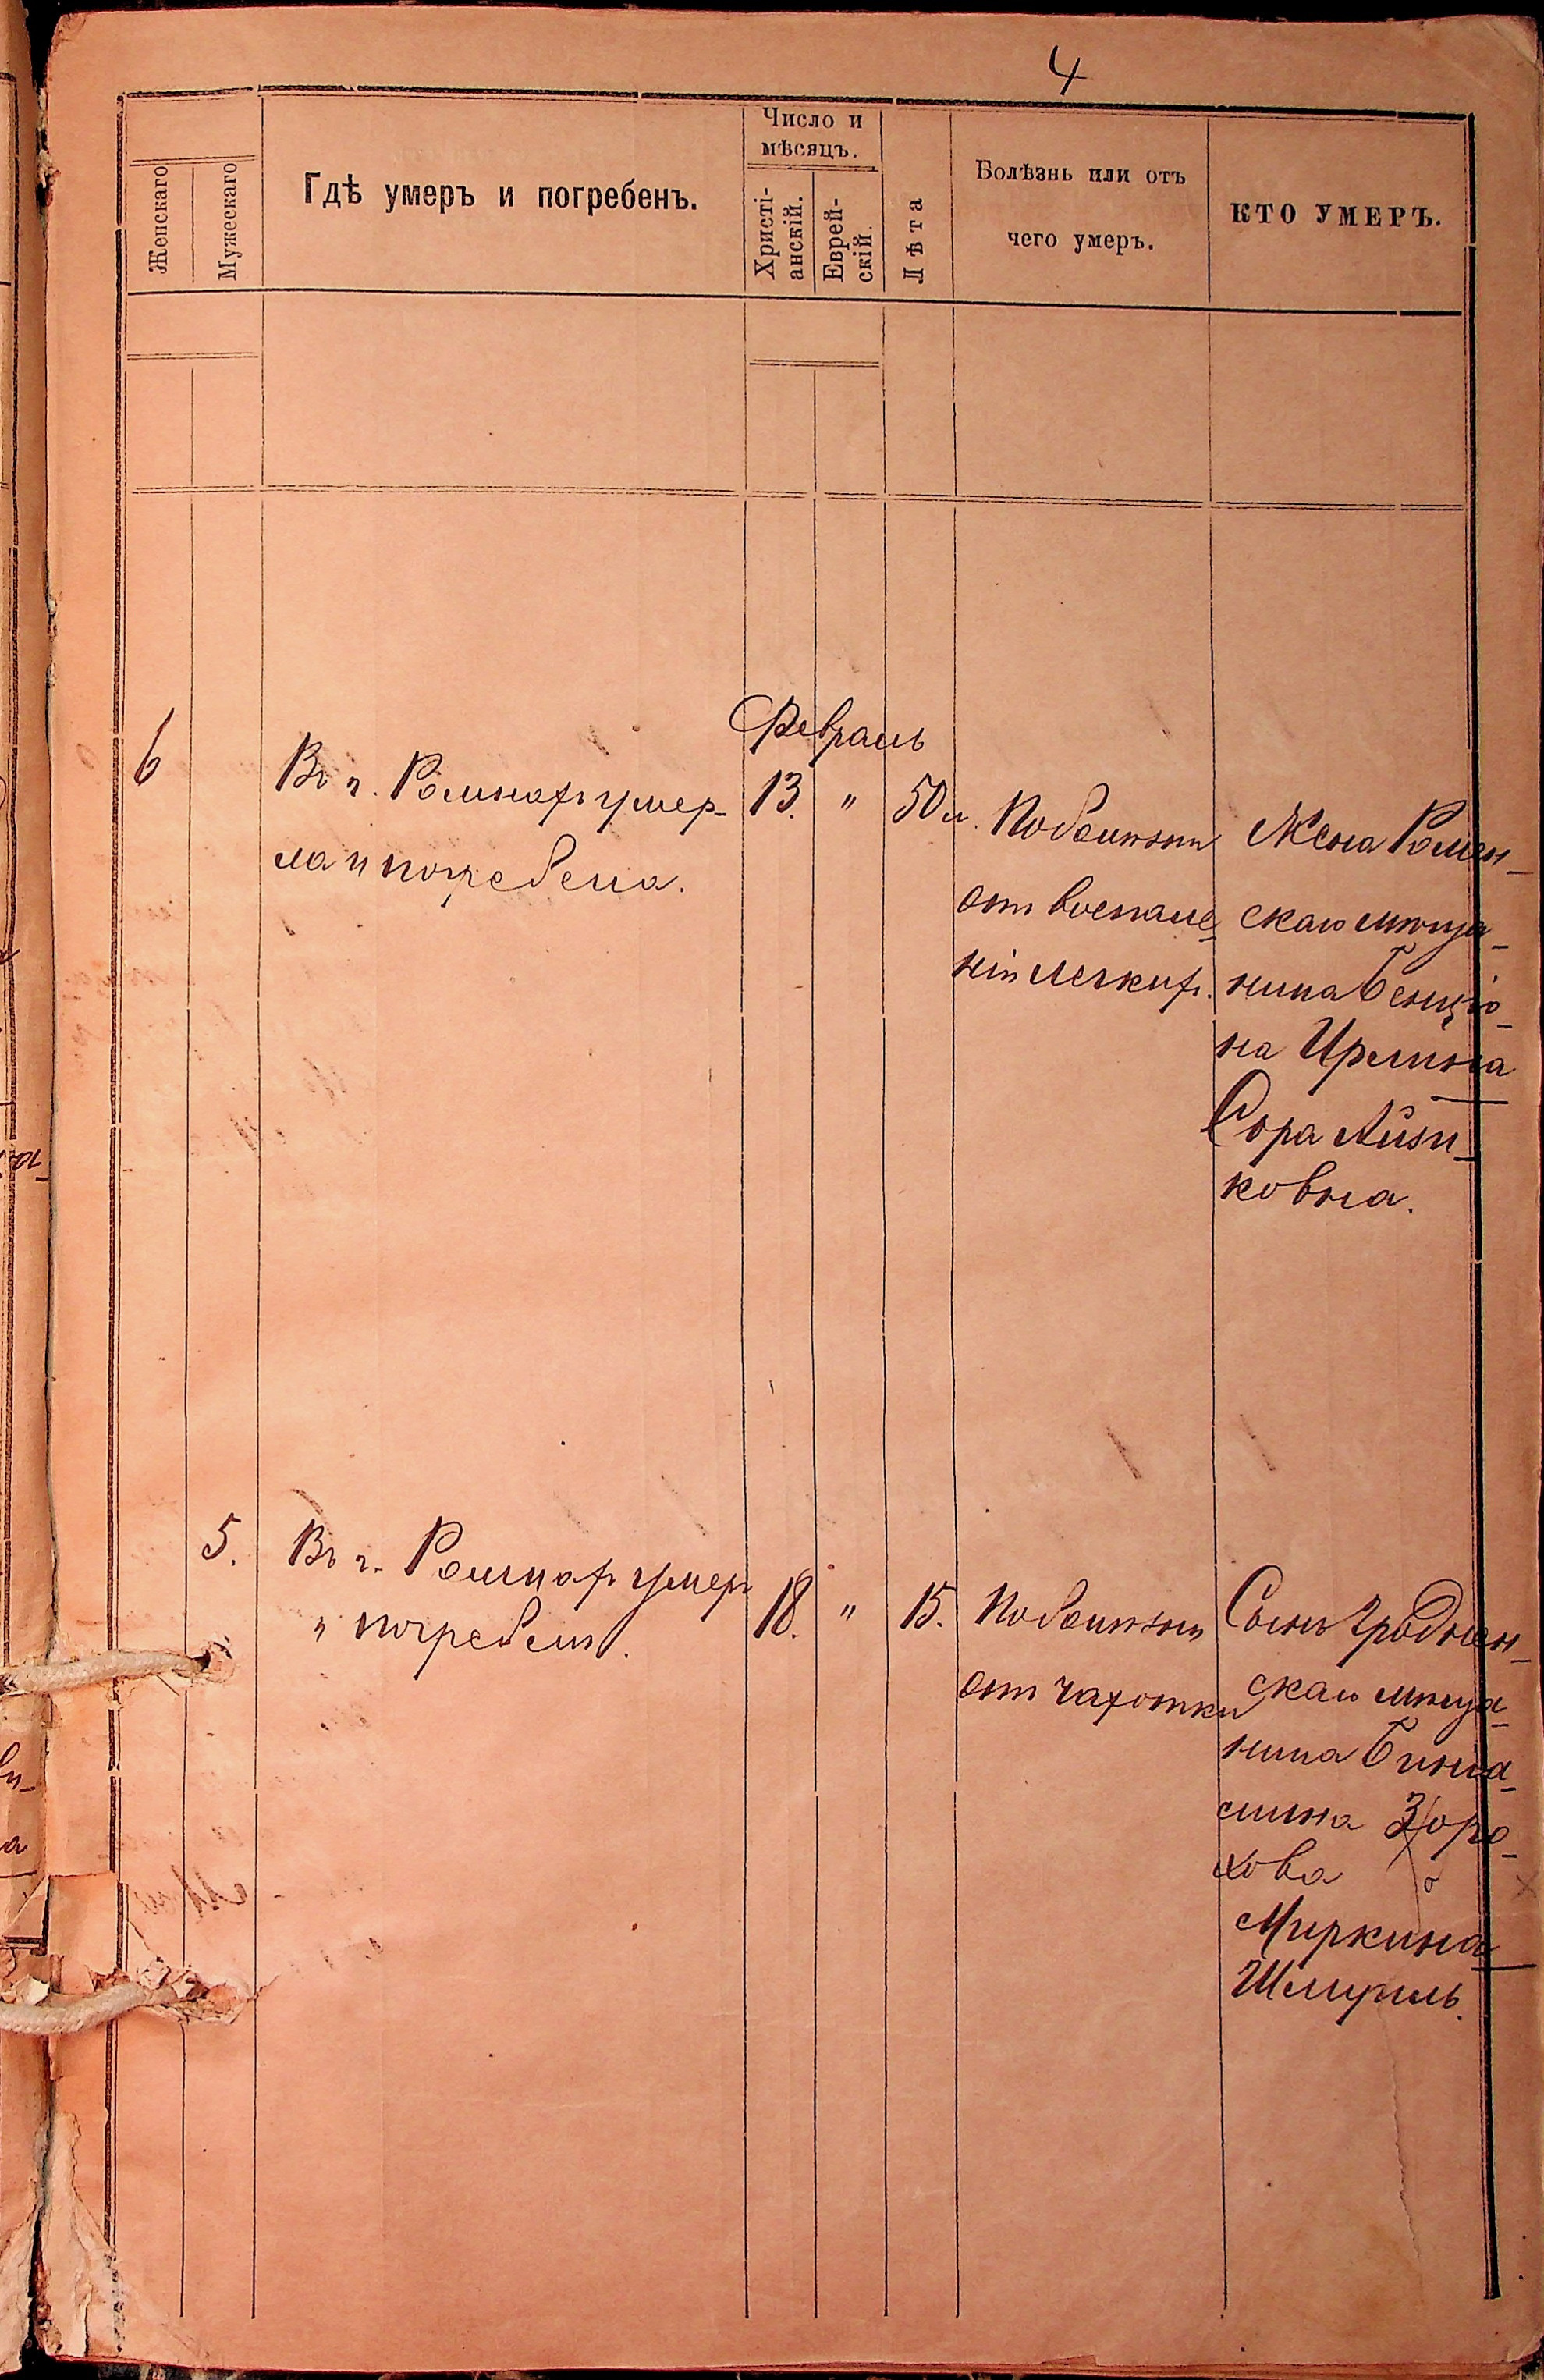 4
Женскаго
Мужескаго
Гдѣ умеръ и погребенъ.
Число и
мѣсяцъ.
Христі-
анскій.
Еврей-
скій.
Лѣта
Болѣзнь или отъ
чего умеръ.
КТО УМЕРЪ.
Февраль
6
Въ г. Ромнахъ умер-
ла и погребена.
13.
"
50 л.
По болѣзни
отъ воспале-
нія легкихъ.
Жена Ромен-
скаго мѣща-
нина Бенціо-
на Ирлина
Сора Айзи-
ковна.
5.
Въ г. Ромнахъ умеръ
и погребенъ.
18.
"
15.
По болѣзни
отъ чахотки
Сынъ Гроднен-
скаго мѣща-
нина Бинья-
мина
хова
Миркина
Шмуиль.